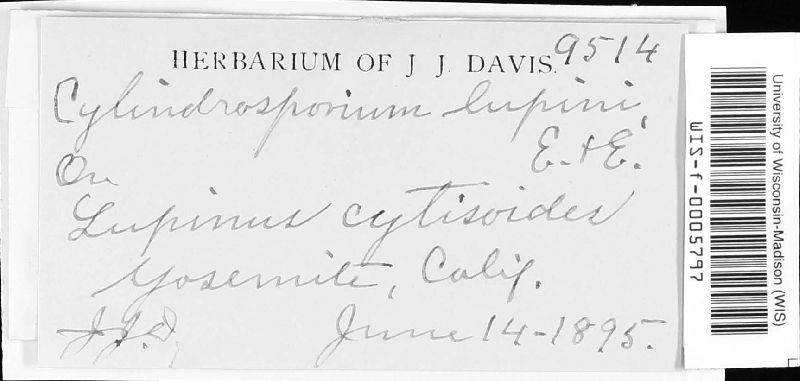 HERBARIUM OF J. J. DAVIS. 9514
Cylindrosporium lupini,
E. & E.
On
Lupinus cytisoides
Yosemite, Calif.
J.J.D. June 14-1895.
University of Wisconsin-Madison (WIS)
WIS-f-0005797